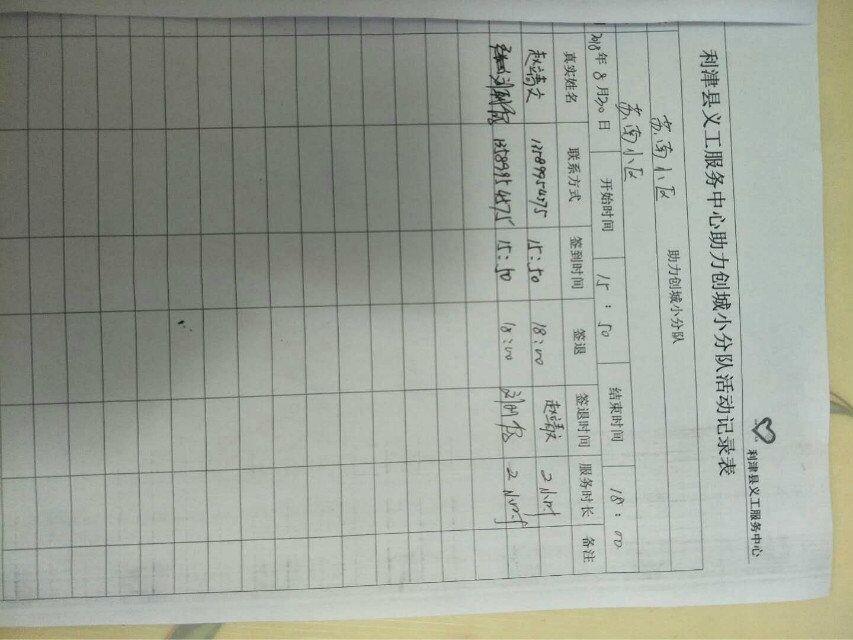 利津县义工服务中心
利津县义工服务中心助力创城小分队活动记录表
苏南小区 助力创城小分队
苏南小区
2018年8月20日 开始时间 15:50 结束时间 18:00
真实姓名 联系方式 签到时间 签退 签退时间 服务时长 备注
赵靖文 13589954875 15:50 18:00 赵靖文 2小时
13589954875 15:50 18:00 2小时